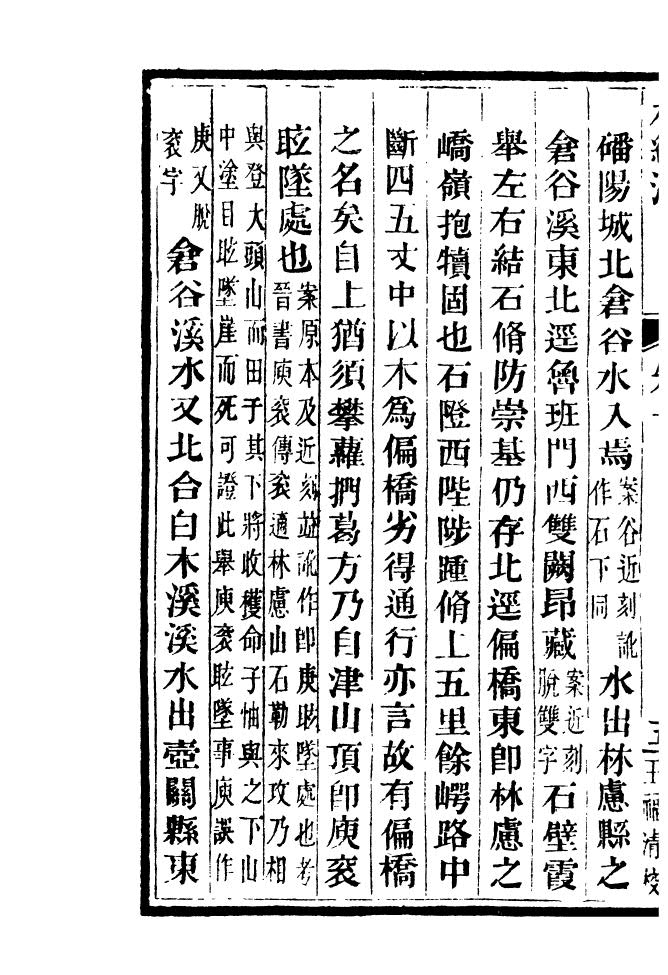 磻陽城北倉谷水入焉案谷近刻訛作石下同水出林慮縣之
倉谷溪東北逕魯班門西雙闕昂藏案近刻脫雙字石壁霞
舉左右結石脩防崇基仍存北逕偏橋東卽林慮之
嶠嶺抱犢固也石隥西陛陟踵脩上五里餘崿路中
斷四五丈中以木爲偏橋劣得通行亦言故有偏橋
之名矣自上猶須攀蘿捫葛方乃自津山頂卽庾袞
眩墜處也案原本及近刻竝訛作卽庚眩墜處也考晉書庾袞傳袞適林慮山石勒來攻乃相
與登大頭山而田于其下將收穫命子怞與之下山中塗目眩墜崖而死可證此舉庾袞眩墜事庾誤作
庚又脫袞字倉谷溪水又北合白木溪溪水出壺關縣東
五 王福清校